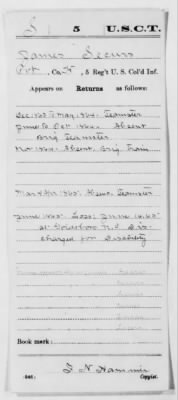 S 5 U.S.C.T.
James Securs
Pvt, Co. K, 5 Reg't U. S. Col'd Inf.
Appears on Returns as follows:
Dec 1863 to May 1864. Teamster
June to Oct 1864. Absent
Brig Teamster
Nov 1864. Absent, Brig Train
Mar & Apr 1865. Absent Teamster
June 1865. Loss: June 16.65
at Goldsboro N.C. Dis-
charged for Disability
Book mark:
Copyist.